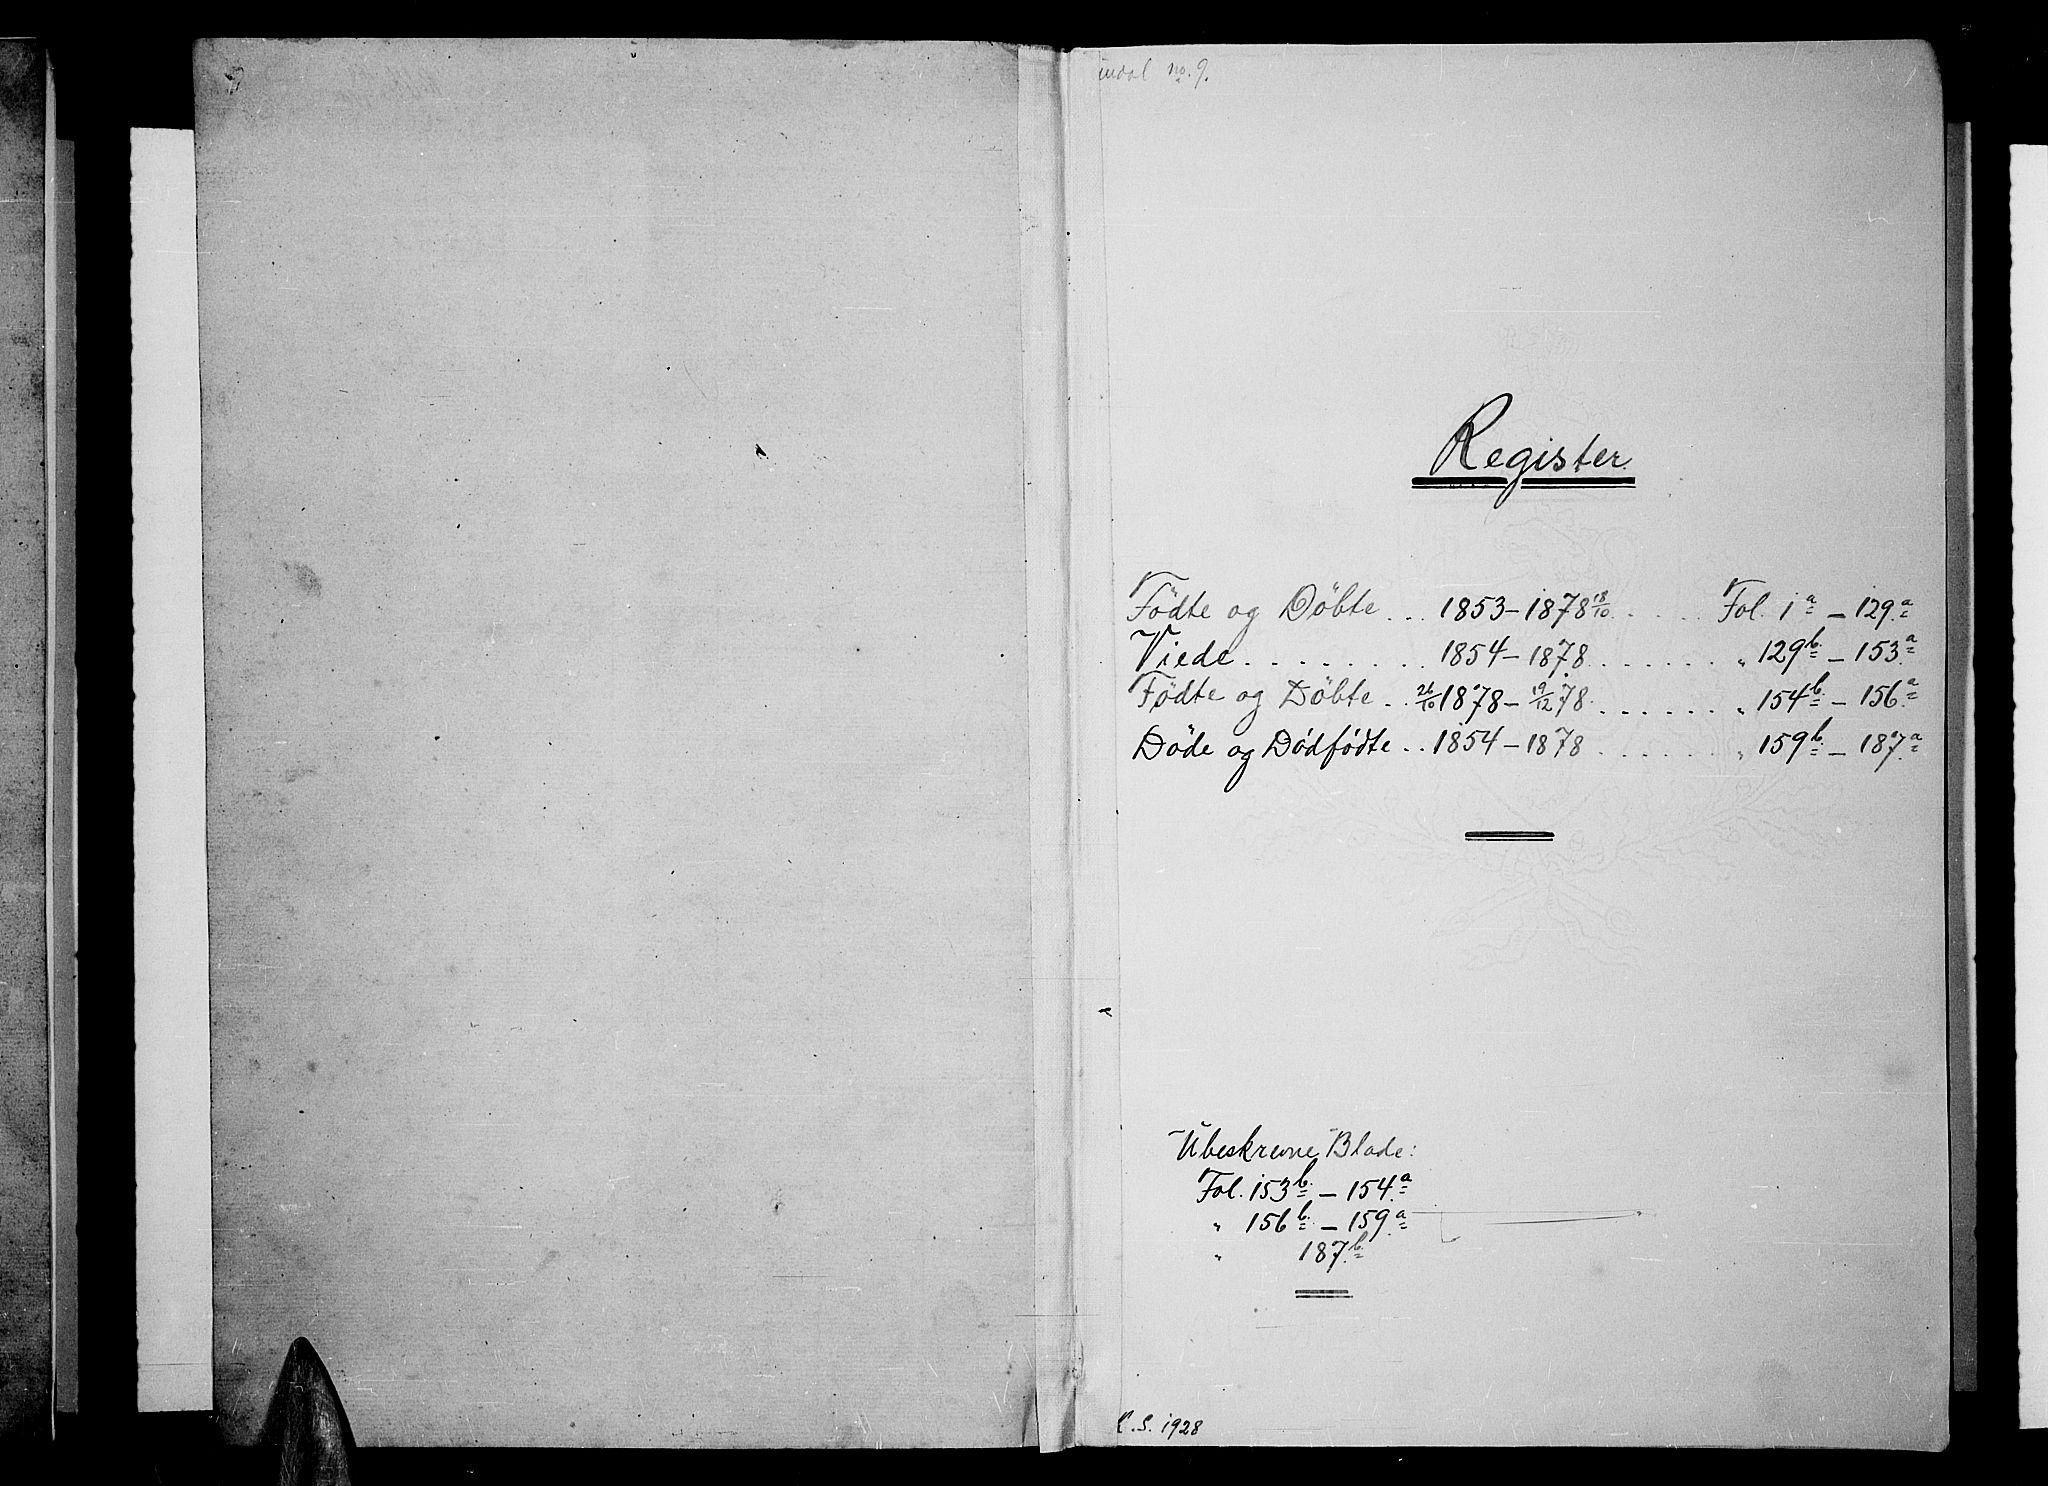 no. 9.
Register
Födte og Döbte ... 1853 – 1878 18/10 . . . . . Fol. 1a – 129a
Viede . . . . . . . . 1854 – 1878 . . . . . . „ 129b – 153a
Födte og Döbte .. 26/10 1878 – 19/12 78 . . . . . . „ 154b – 156a
Döde og Dödfödte .. 1854 – 1878 . . . . . . „ 159b – 187a
Ubeskrevne Blade:
Fol. 153b – 154a
„ 156b – 159a
„ 187b
S. 1928